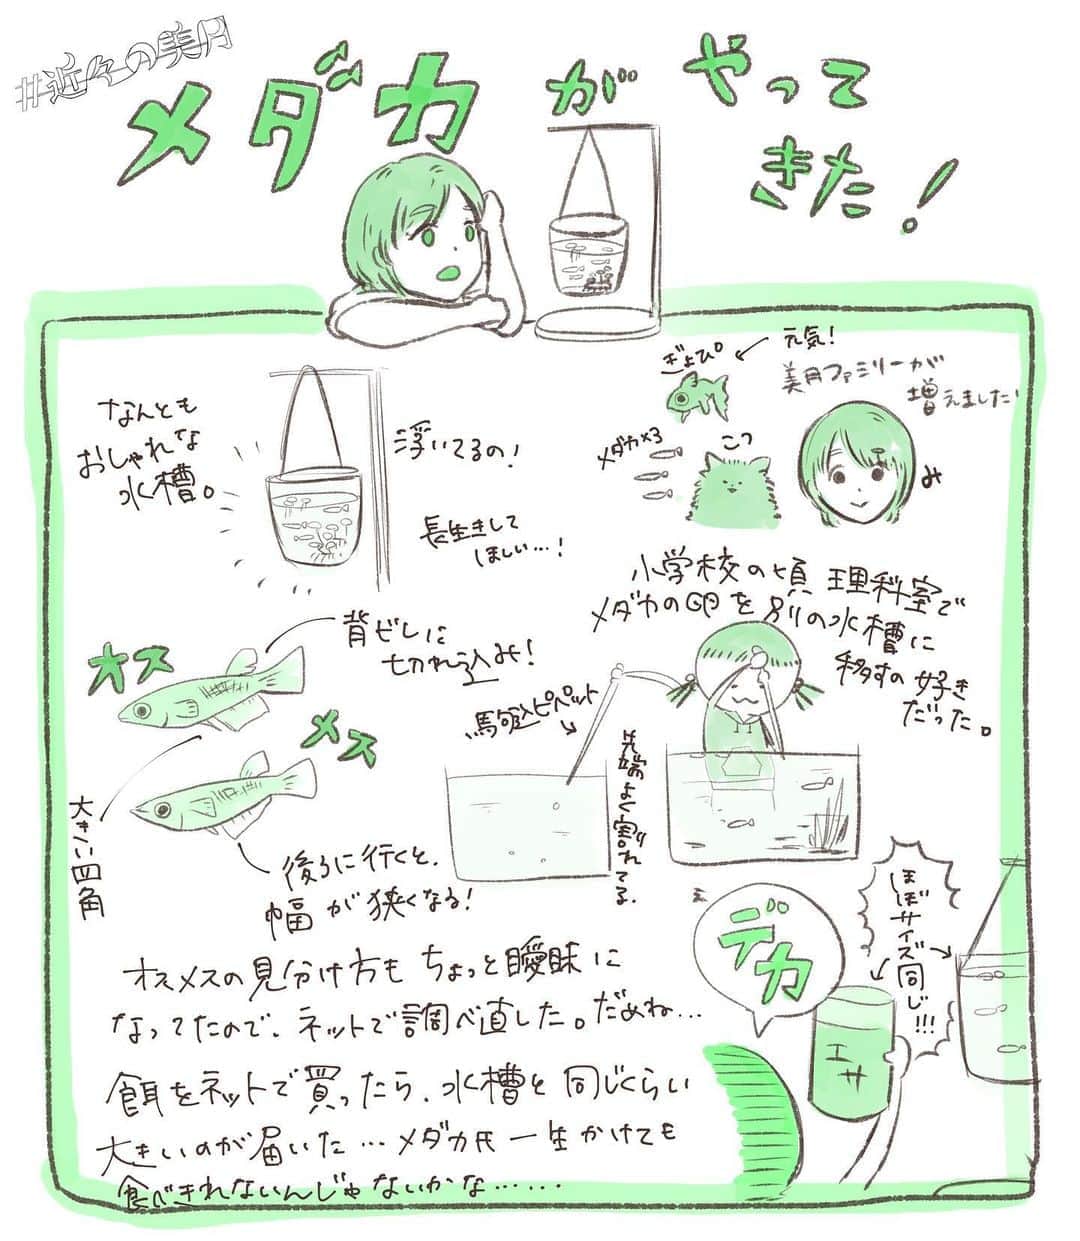 #近々の美月
メダカが やって
きた!
なんとも
おしゃれな
水槽。
浮いてるの!
長生きして
ほしい…!
ぎょぴ
元気!
美月ファミリーが
増えました!
メダカ×3
こつ
み
小学校の頃 理科室で
メダカの卵を別の水槽に
移すの好き
だった。
オス
背ビレに
切れ込み!
メス
大きい四角
後ろに行くと、
幅が狭くなる!
駒込ピペット
先端よく割れてる。
オスメスの見分け方もちょっと曖昧に
なってたので、ネットで調べ直した。だめね…
餌をネットで買ったら、水槽と同じくらい
大きいのが届いた…メダカ氏一生かけても
食べきれないんじゃないかな……
え
デカ
ほぼサイズ同じ!!!
エサ